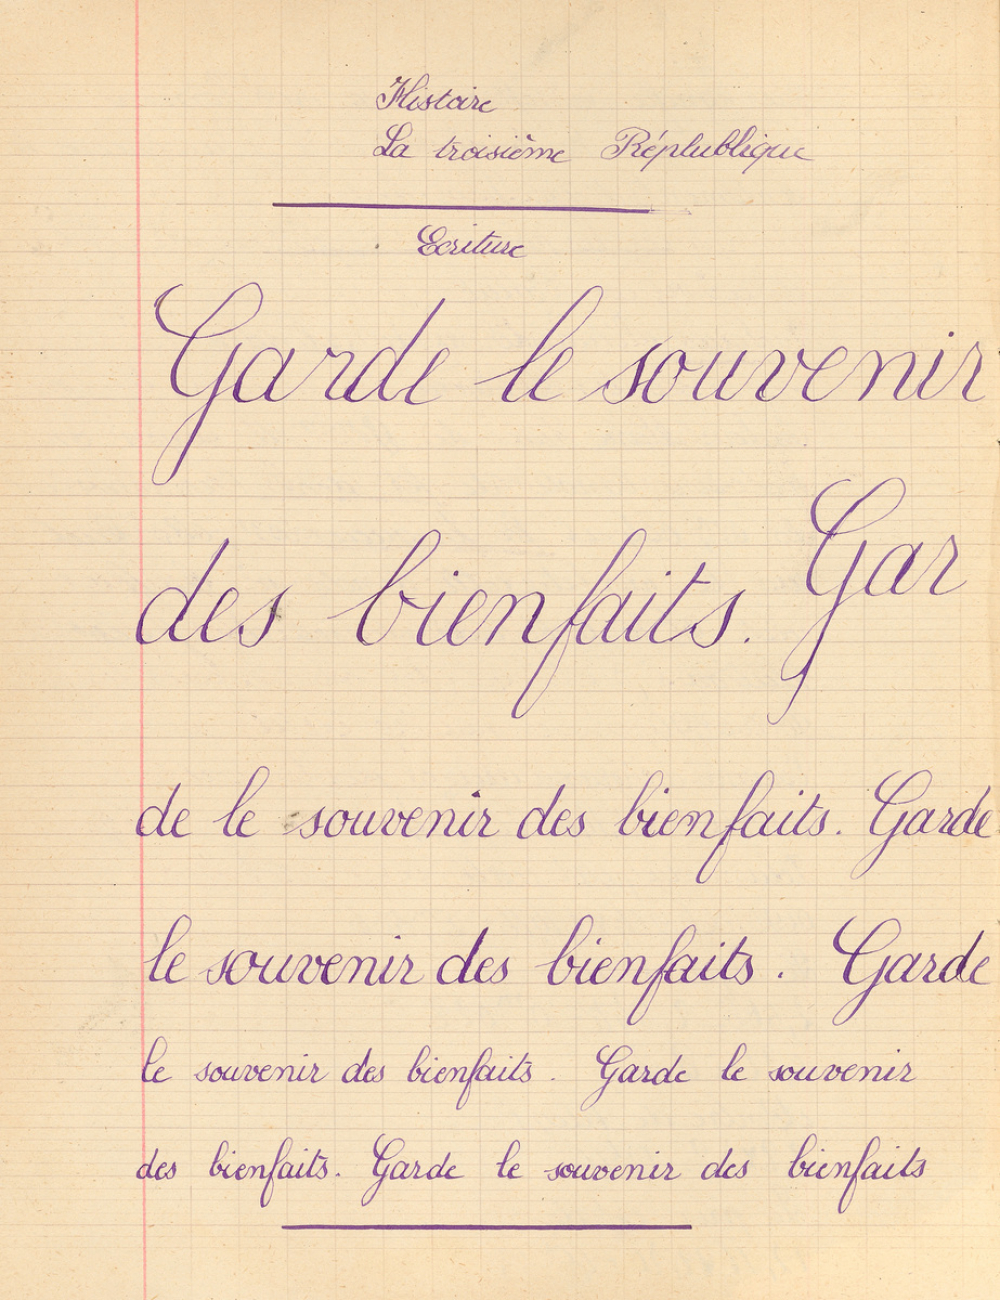 Histoire
La troisième Réplublique
Ecriture
Garde le souvenir
des bienfaits. Gar
de le souvenir des bienfaits. Garde
le souvenir des bienfaits. Garde
le souvenir des bienfaits. Garde le souvenir
des bienfaits. Garde le souvenir des bienfaits